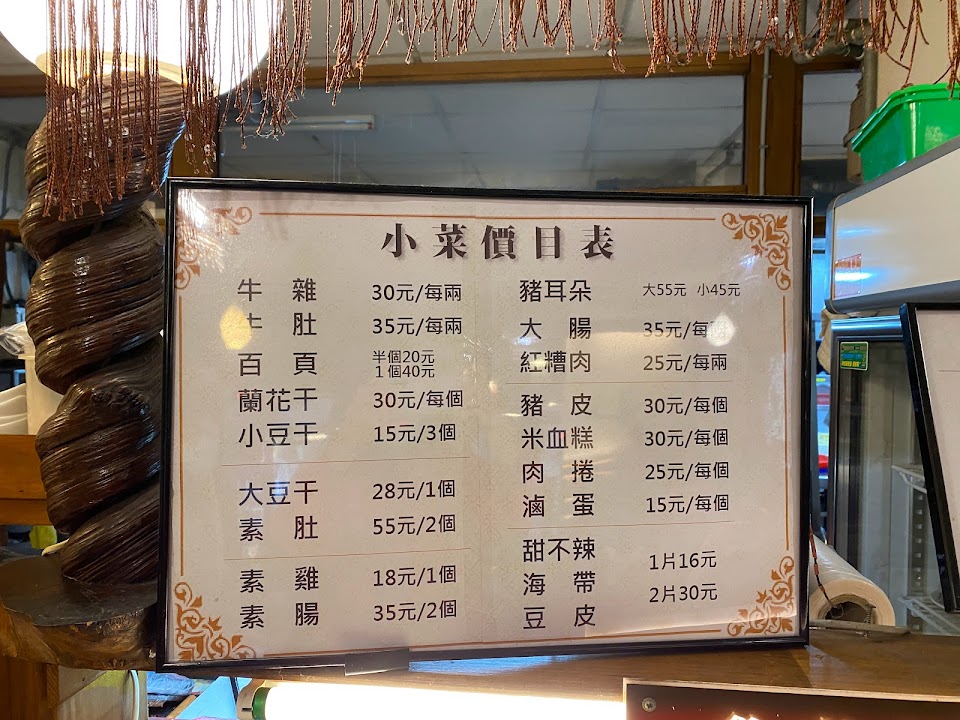 小菜價目表
牛雜 30元/每兩
牛肚 35元/每兩
百頁 半個20元
1個40元
蘭花干 30元/每個
小豆干 15元/3個
大豆干 28元/1個
素肚 55元/2個
素雞 18元/1個
素腸 35元/2個
豬耳朵 大55元 小45元
大腸 35元/每兩
紅糟肉 25元/每兩
豬皮 30元/每個
米血糕 30元/每個
肉捲 25元/每個
滷蛋 15元/每個
甜不辣
海帶
豆皮
1片16元
2片30元